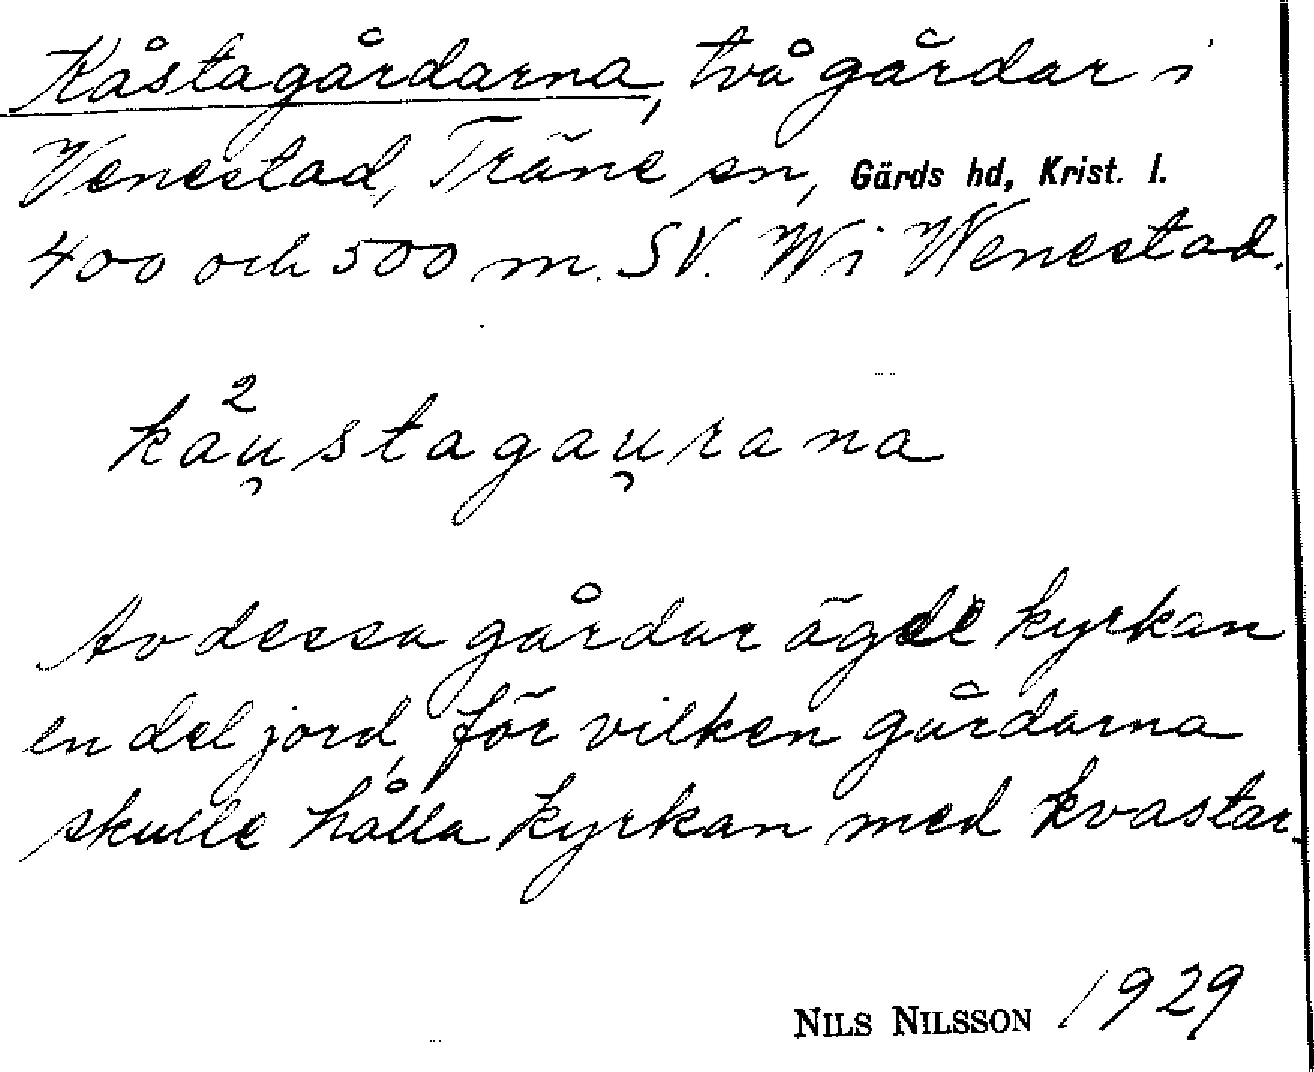 Kåstagårdarna, två gårdar i
Venestad, Träne sn, Gärds hd, Krist. l.
400 och 500 m. SV. W i Wenestad.
kåu̯²stagau̯rana
Av dessa gårdar ägde kyrkan
en del jord, för vilken gårdarna
skulle hålla kyrkan med kvastar.
NILS NILSSON 1929